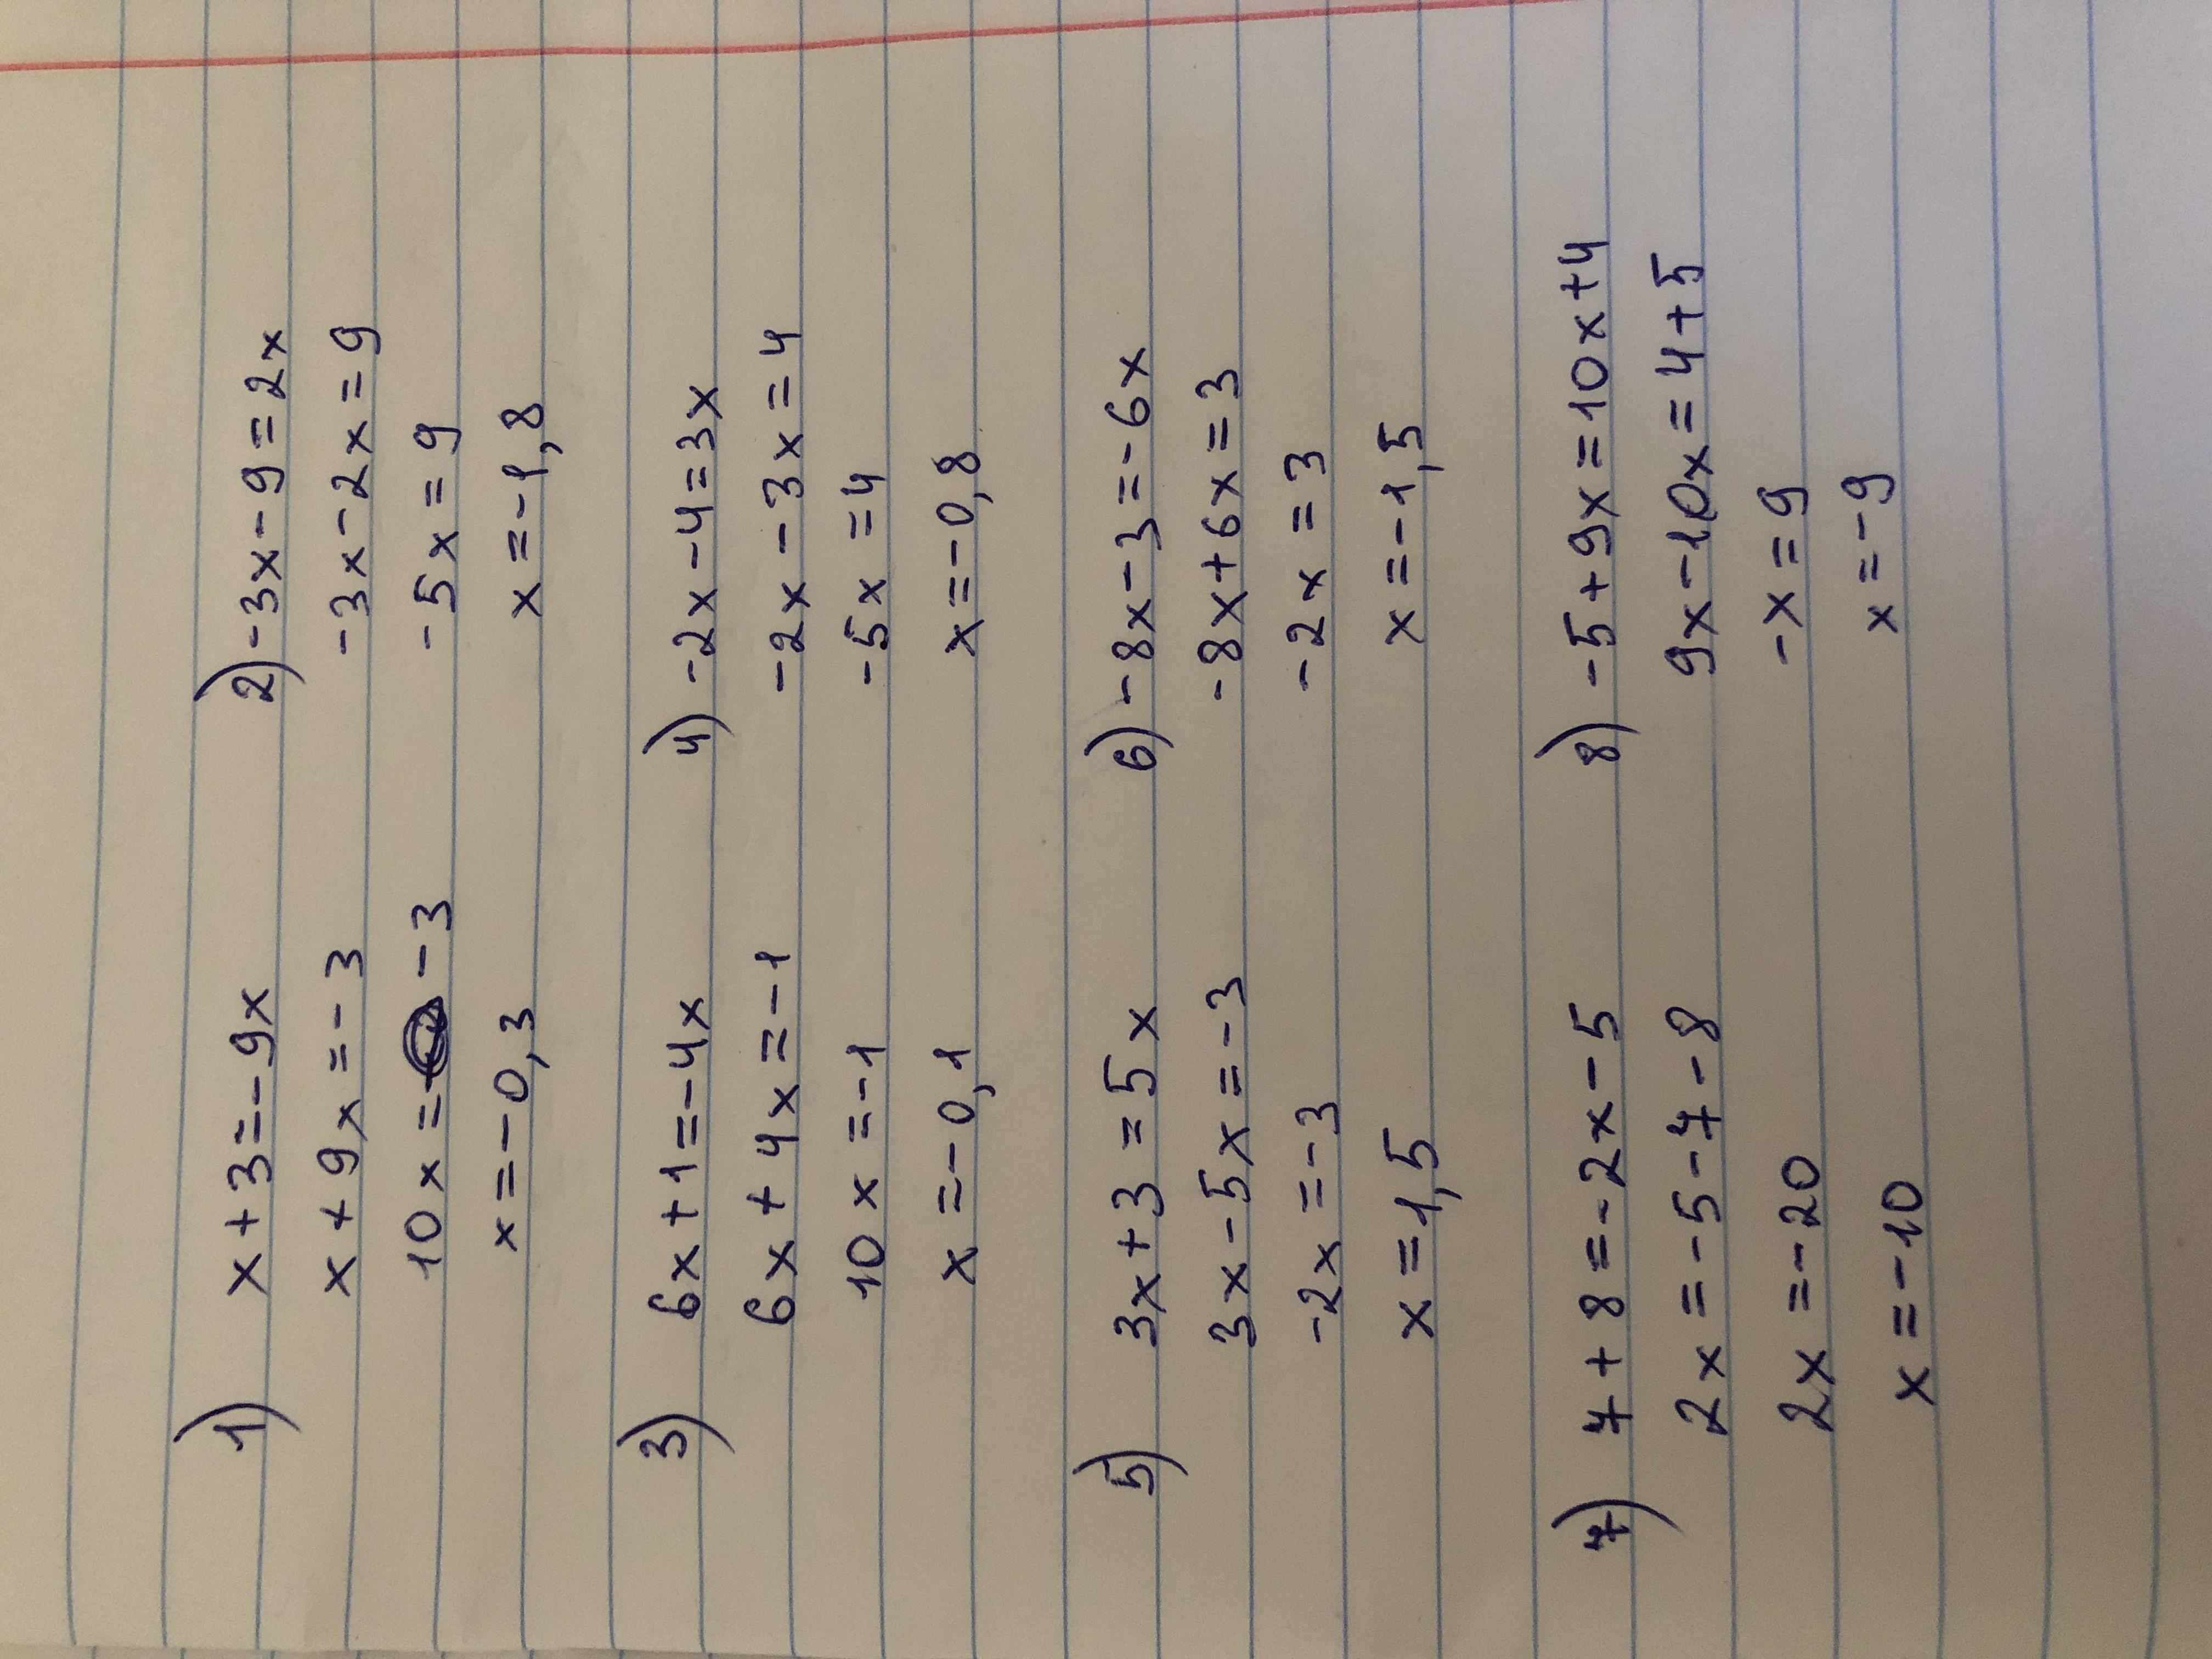 1) x+3=-9x
x+9x=-3
10x=-3
x=-0,3
2) -3x-9=2x
-3x-2x=9
-5x=9
x=-1,8
3) 6x+1=-4x
6x+4x=-1
10x=-1
x=-0,1
4) -2x-4=3x
-2x-3x=4
-5x=4
x=-0,8
5) 3x+3=5x
3x-5x=-3
-2x=-3
x=1,5
6) -8x-3=-6x
-8x+6x=3
-2x=3
x=-1,5
7) 7+8=-2x-5
2x=-5-7-8
2x=-20
x=-10
8) -5+9x=10x+4
9x-10x=4+5
-x=9
x=-9